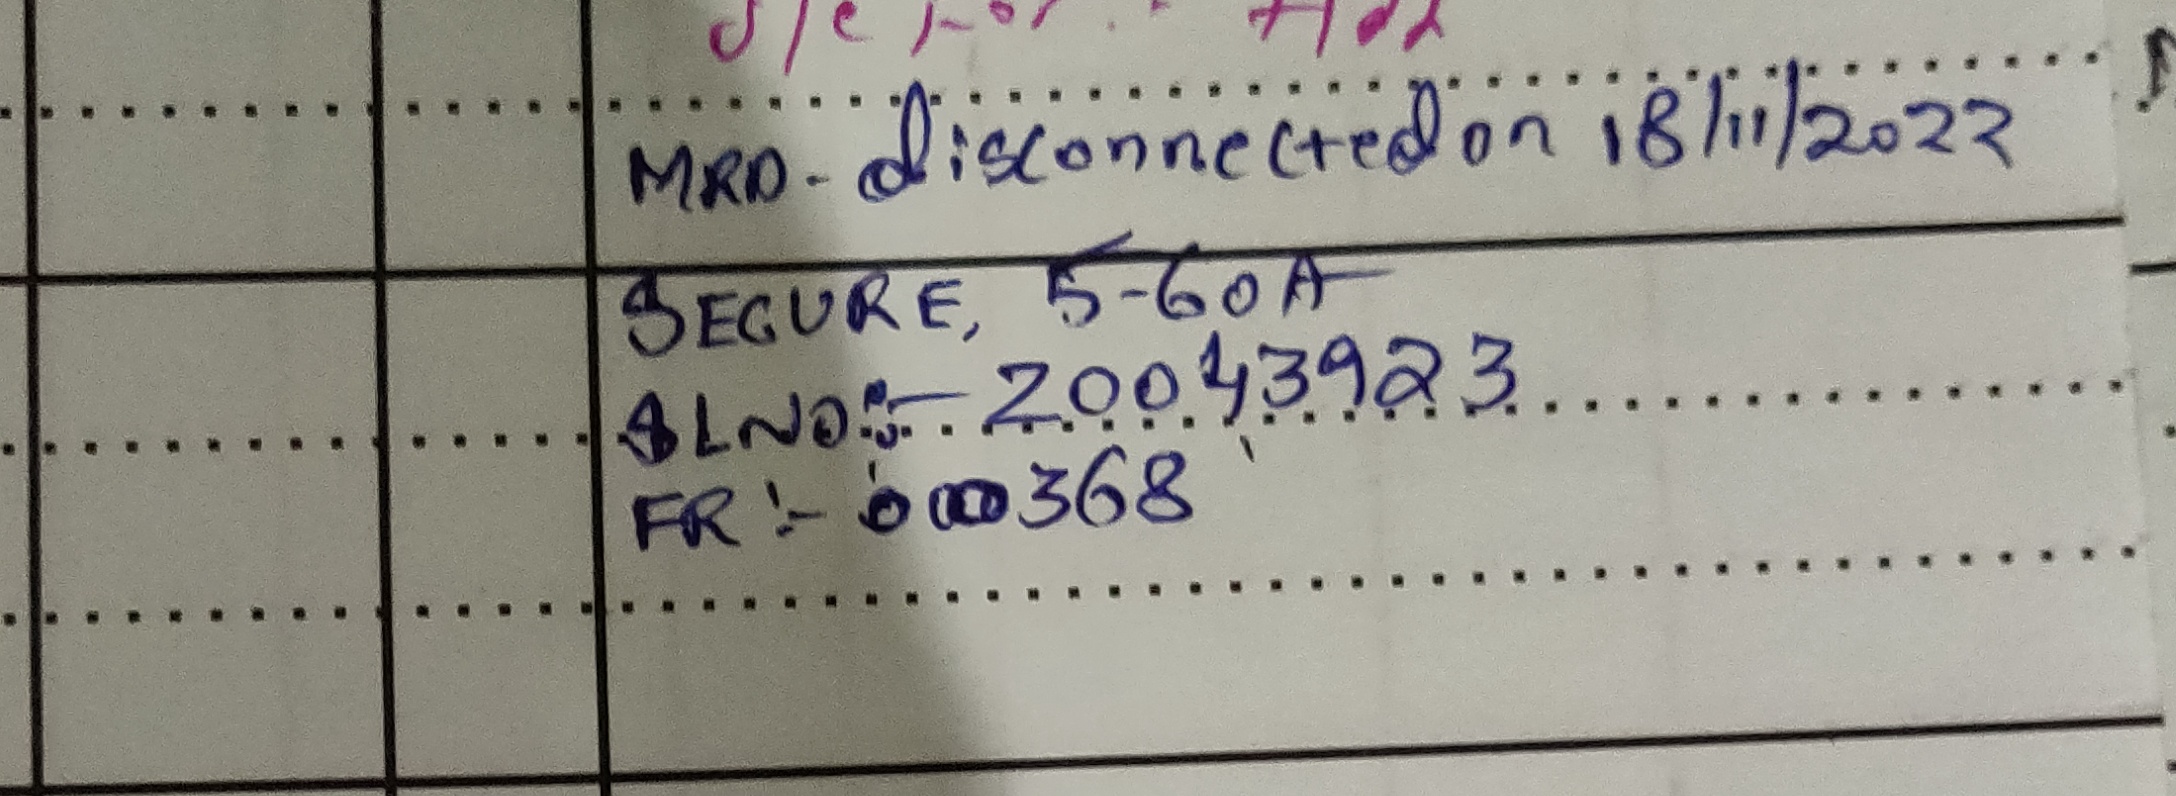 MRD - disconnected on 18/11/2022
SECURE, 5-60A
SLNO:- 20043923
FR :- 000368